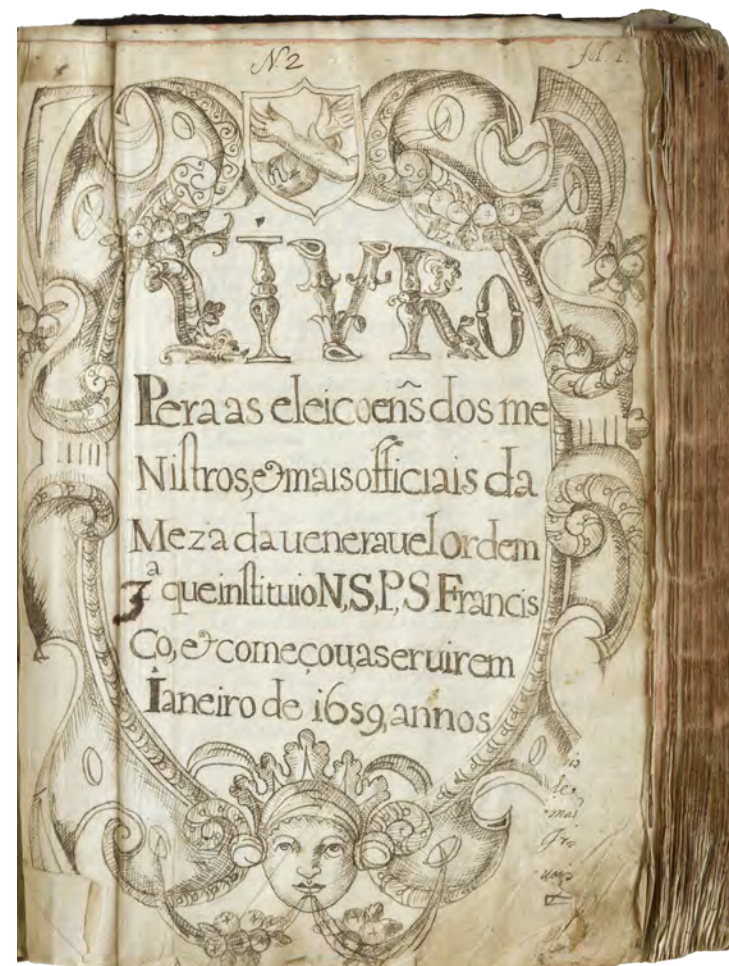 N. 2
fol. 1.
LIVRO
Pera as eleicoeñs dos me
Nistros, & mais officiais da
Meza da ueneravel ordem
3ª que instituio N,S,P,S Francis
Co, & começou a seruir em
Ianeiro de 1659, annos
mai